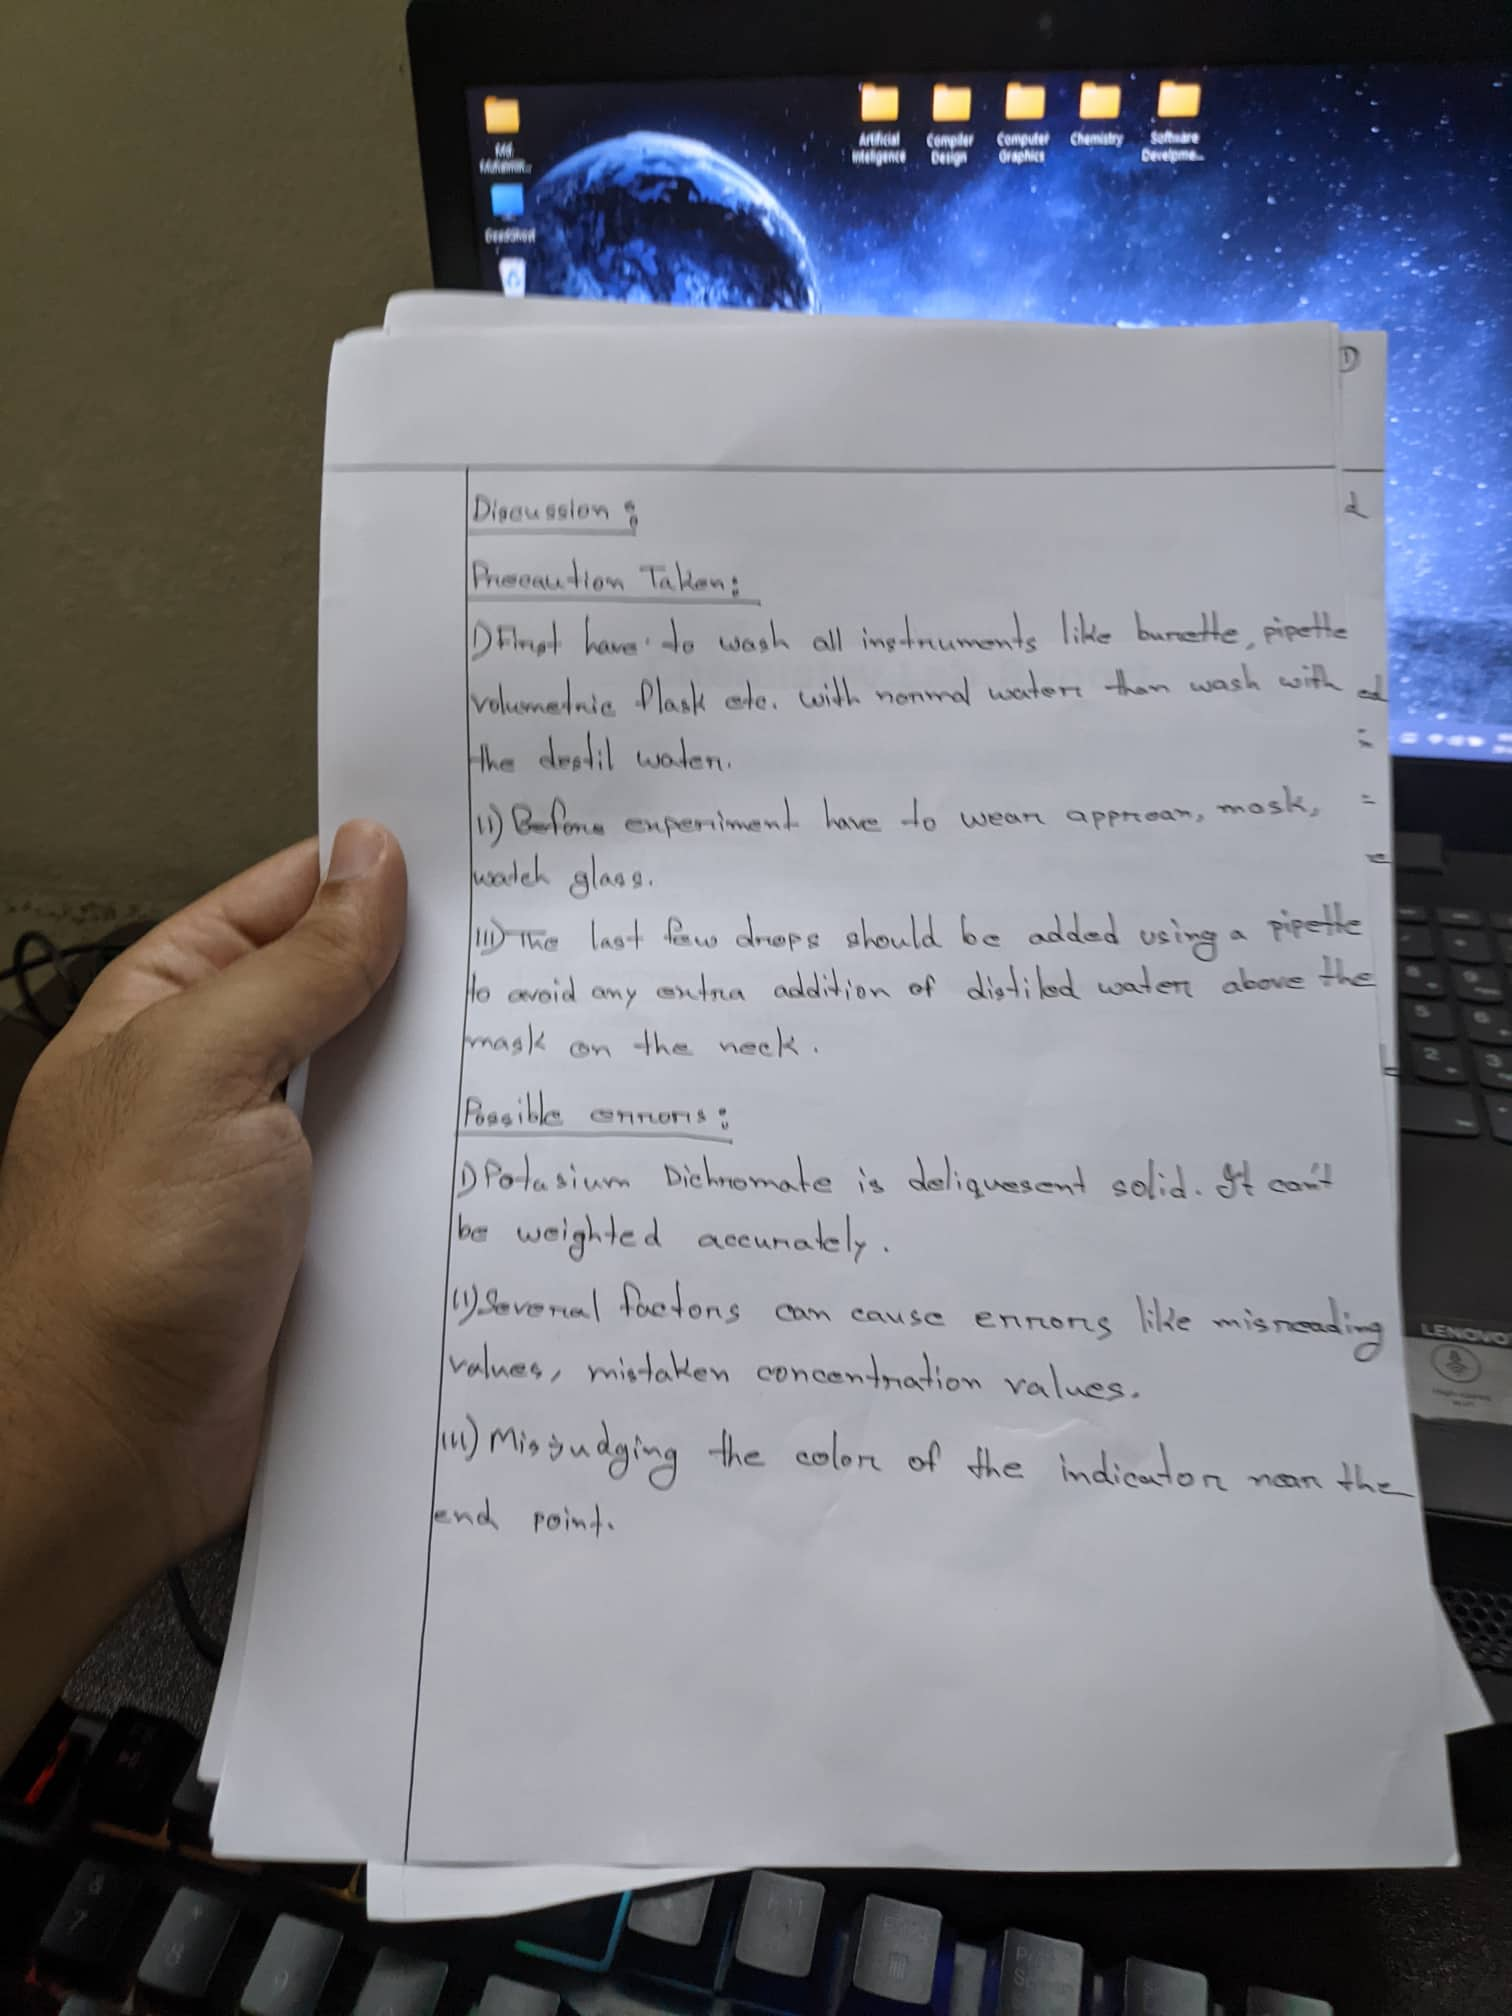 Artificial Inteligence
Compiler Design
Computer Graphics
Chemistry
Software Develpme...
Md.
D
Discussion :
d
Precaution Taken:
I) First have to wash all instruments like burette, pipette
volumetric flask etc. with normal water then wash with
ed
the destil water.
in
II) Before experiment have to wear approan, mask,
=
watch glass.
re
III) The last few drops should be added using a pipette
to avoid any extra addition of distiled water above the
mask on the neck.
Possible errors:
I) Potasium Dichromate is deliquesent solid. It can't
be weighted accurately.
II) Several factors can cause errors like misreading
values, mistaken concentration values.
III) Misjudging the color of the indicator near the
end point.
LENOVO
5
6
2
3
7
8
9